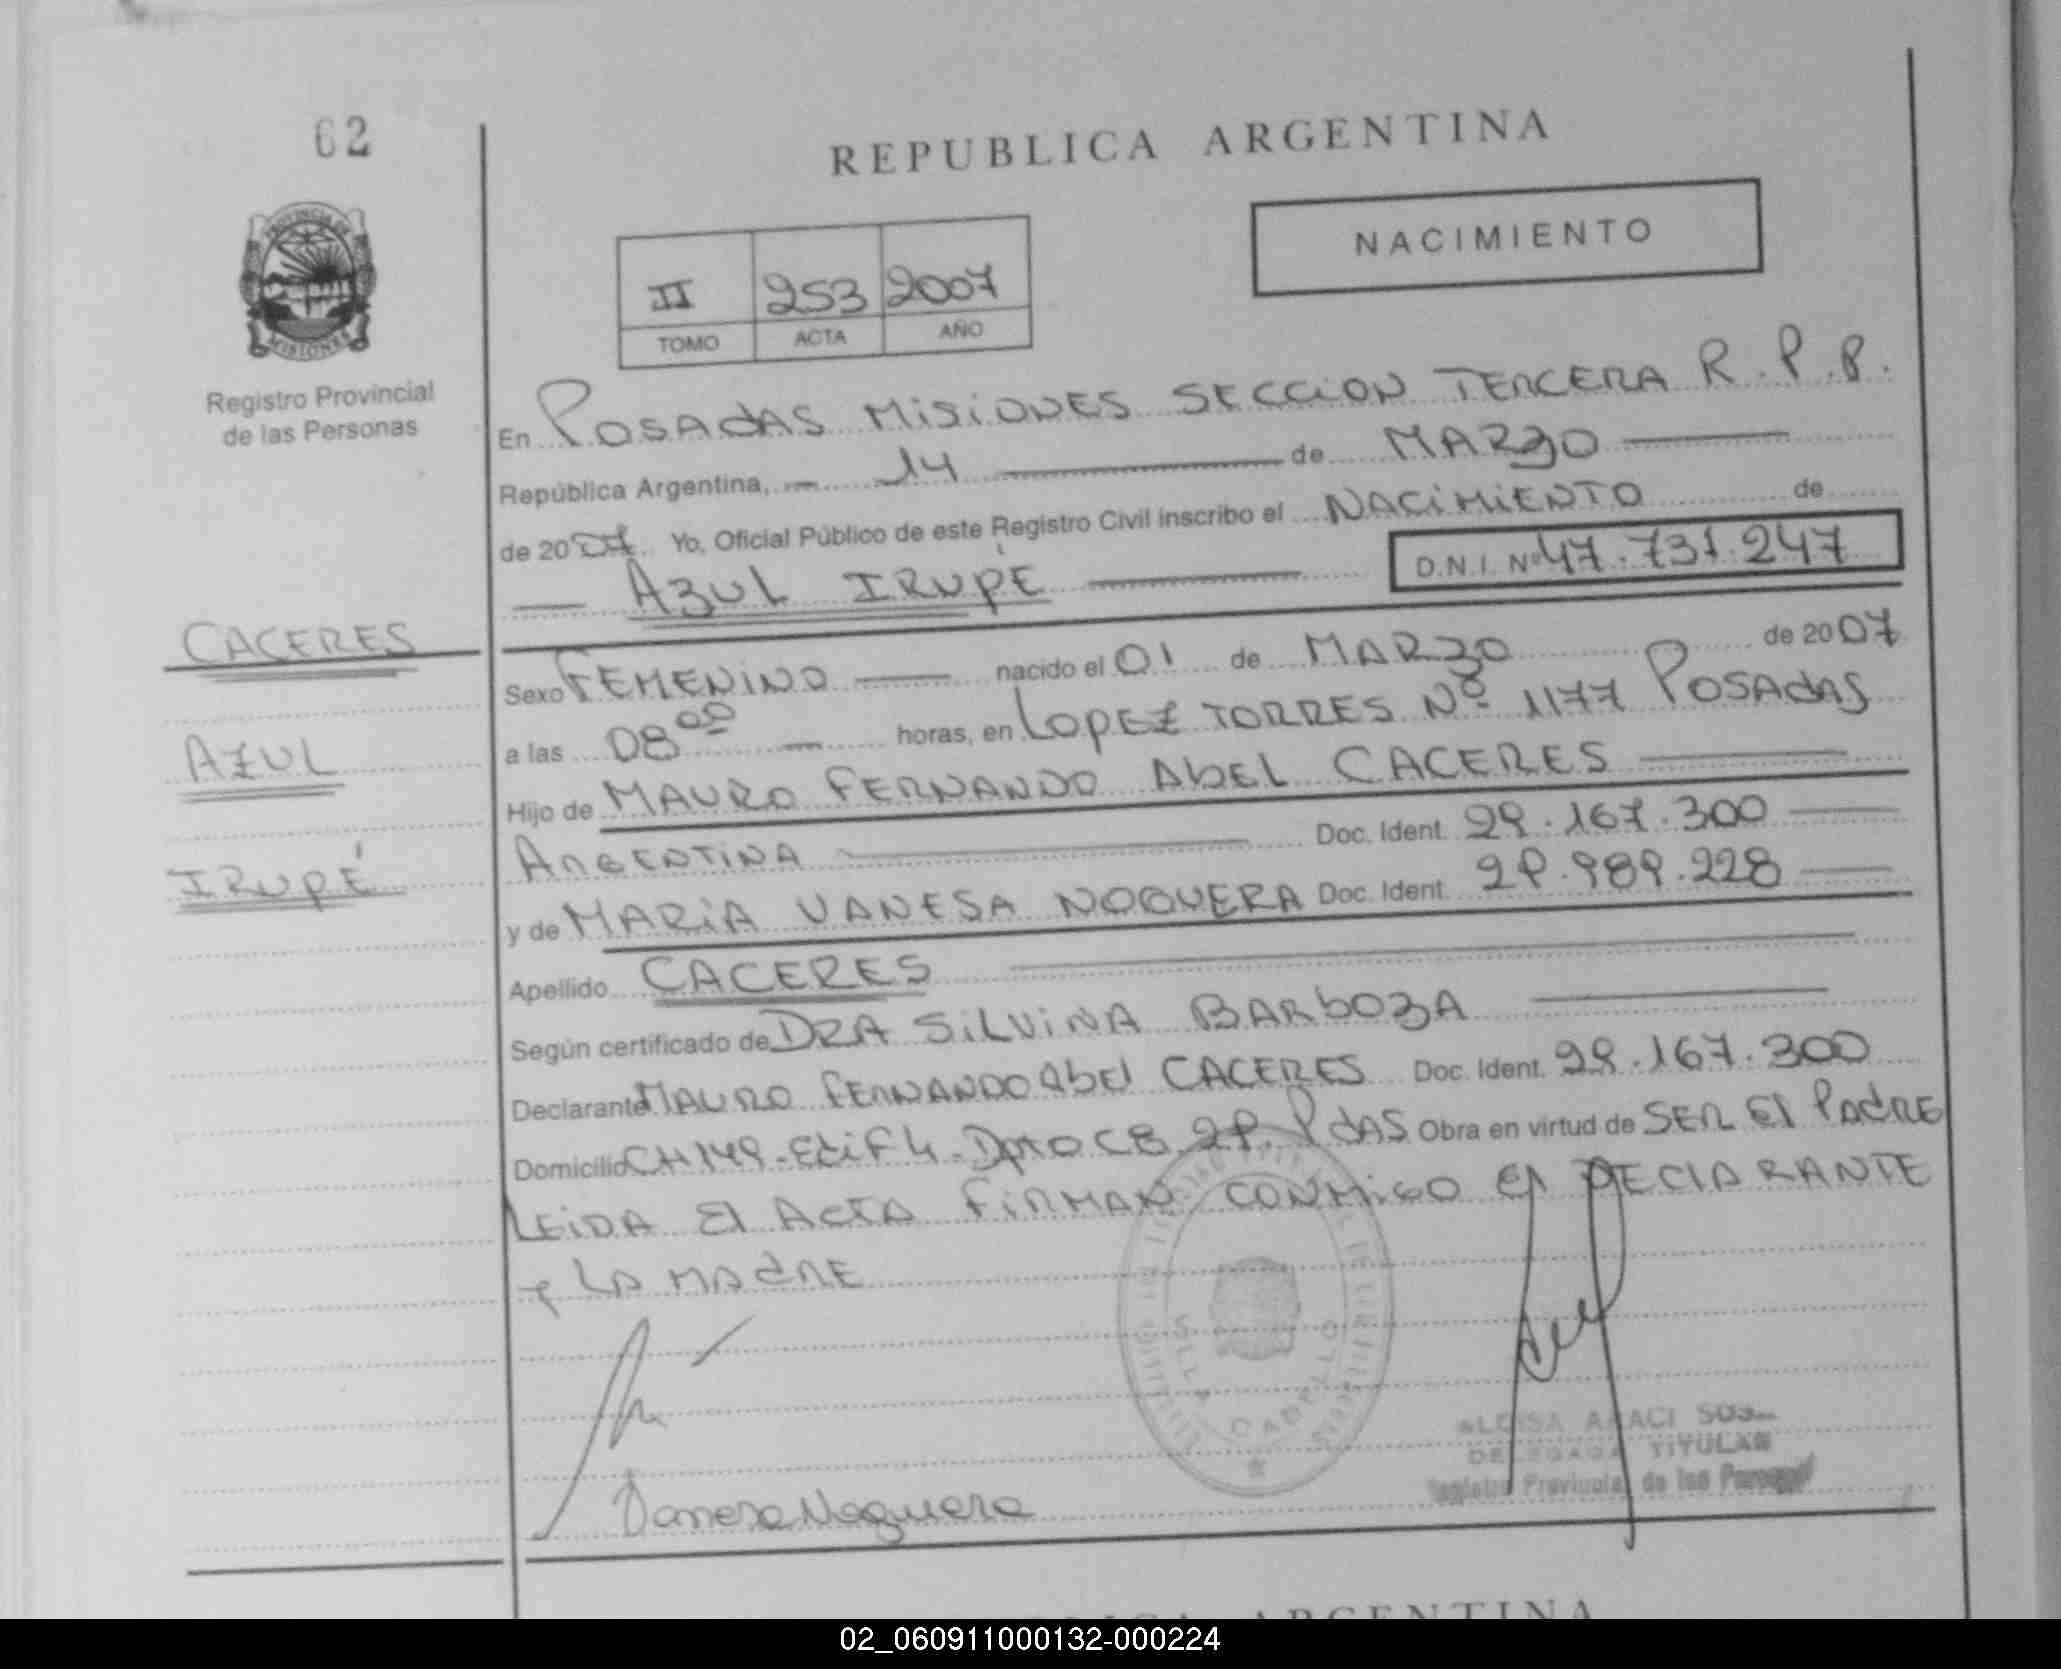 62
REPUBLICA ARGENTINA
NACIMIENTO
II 253 2007
TOMO ACTA AÑO
PROVINCIA DE
MISIONES
Registro Provincial
de las Personas
En POSADAS MISIONES SECCION TERCERA R.P.P.
República Argentina, 14 de MARZO
de 2007 Yo, Oficial Público de este Registro Civil inscribo el NACIMIENTO de
AZUL IRUPÉ D.N.I. Nº 47.731.247
CACERES
Sexo FEMENINO nacido el 01 de MARZO de 2007
a las 08 00 horas, en LOPEZ TORRES Nº 1177 POSADAS
AZUL
Hijo de MAURO FERNANDO AbEL CACERES
ARGENTINA Doc. Ident. 29.167.300
IRUPÉ
y de MARiA VANESA NOGUERA Doc. Ident. 29.989.228
Apellido CACERES
Según certificado de DRA SiLViNA BARbOZA
Declarante MAURO FERNANDO Abel CACERES Doc. Ident. 29.167.300
Domicilio CH 149-Edif 4-Dpto CB 2P. PdAS Obra en virtud de SER El PAdRE
LEiDA El ACTA FiRMAN CONMiGO El DEClARANTE
y LA MAdRE
CABELLO
Vanesa Noguera
ARACI
DELEGADA TITULAR
Registro Provincial de las Personas
ARGENTINA
02_060911000132-000224